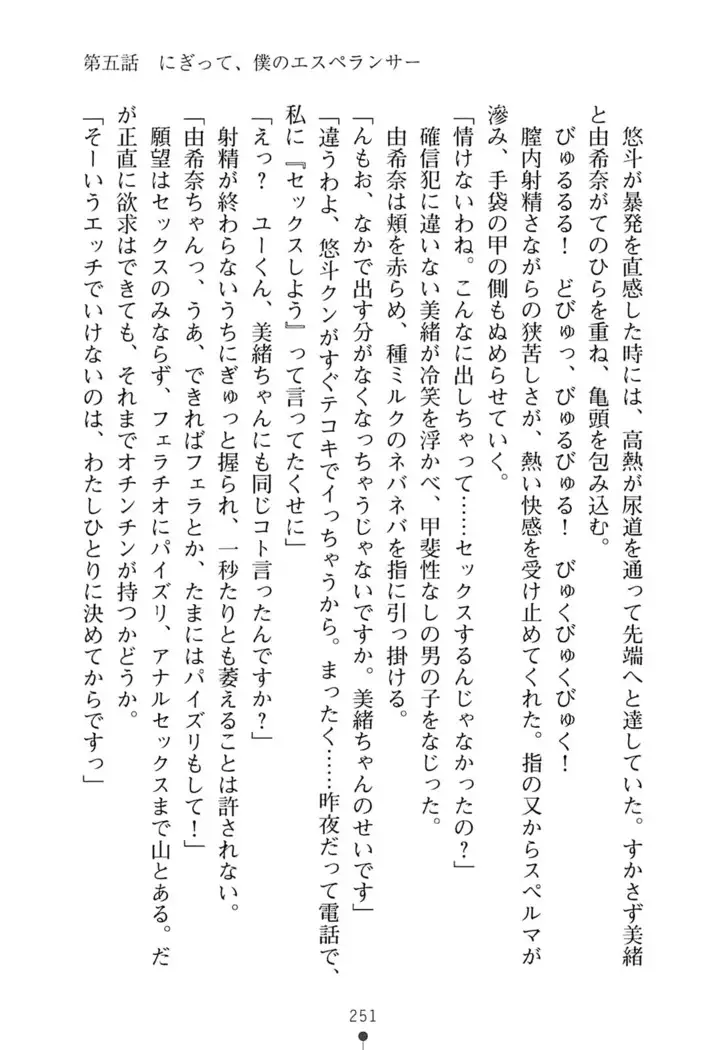 第五話　にぎって、僕のエスペランサー
悠斗が暴発を直感した時には、高熱が尿道を通って先端へと達していた。すかさず美緒
と由希奈がてのひらを重ね、亀頭を包み込む。
びゅるるる！　どびゅっ、びゅるびゅる！　びゅくびゅくびゅく！
膣内射精さながらの狭苦しさが、熱い快感を受け止めてくれた。指の又からスペルマが
滲み、手袋の甲の側もぬめらせていく。
「情けないわね。こんなに出しちゃって……セックスするんじゃなかったの？」
確信犯に違いない美緒が冷笑を浮かべ、甲斐性なしの男の子をなじった。
由希奈は頬を赤らめ、種ミルクのネバネバを指に引っ掛ける。
「んもお、なかで出す分がなくなっちゃうじゃないですか。美緒ちゃんのせいです」
「違うわよ、悠斗クンがすぐテコキでイっちゃうから。まったく……昨夜だって電話で、
私に『セックスしよう』って言ってたくせに」
「えっ？　ユーくん、美緒ちゃんにも同じコト言ったんですか？」
射精が終わらないうちにぎゅっと握られ、一秒たりとも萎えることは許されない。
「由希奈ちゃんっ、うあ、できればフェラとか、たまにはパイズリもして！」
願望はセックスのみならず、フェラチオにパイズリ、アナルセックスまで山とある。だ
が正直に欲求はできても、それまでオチンチンが持つかどうか。
「そーいうエッチでいけないのは、わたしひとりに決めてからですっ」
251